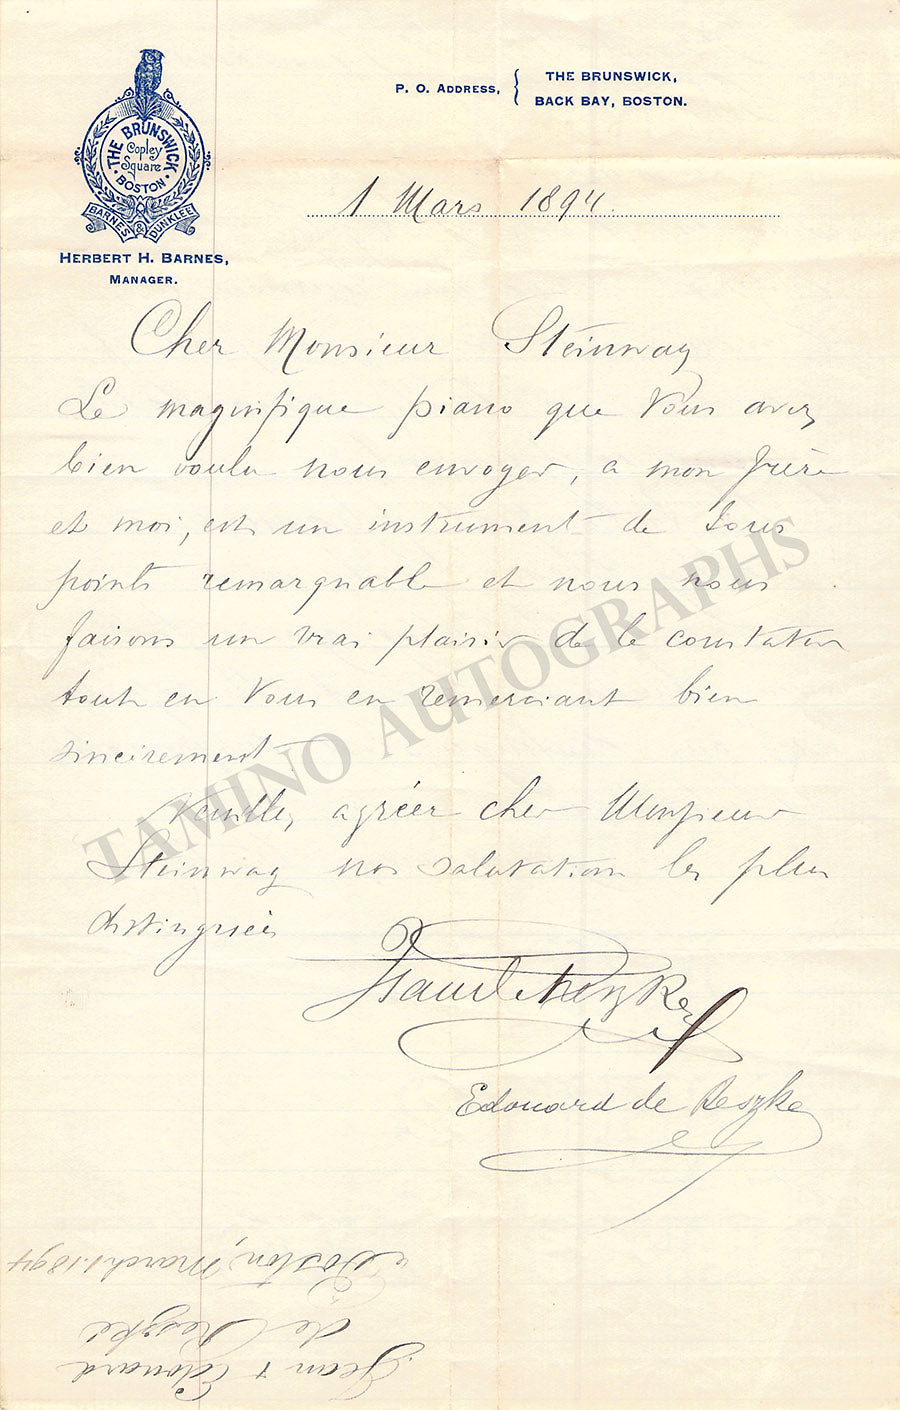 THE BRUNSWICK
Copley
Square
BOSTON
BARNES & DUNKLEE
HERBERT H. BARNES,
MANAGER.
P. O. ADDRESS, { THE BRUNSWICK,
BACK BAY, BOSTON.
1 Mars 1894.
Cher Monsieur Steinway
Le magnifique piano que Vous avez
bien voulu nous envoyer, a mon frère
et moi, est un instrument de tous
points remarquable et nous nous
faisons un vrai plaisir de le constater
tout en Vous en remerciant bien
sincèrement
Veuillez agréer cher Monsieur
Steinway nos salutations les plus
distinguées
Jean de Reszke
Edouard de Reszke
Jean & Edouard
de Reszké
Boston, March 1. 1894
TAMINO AUTOGRAPHS